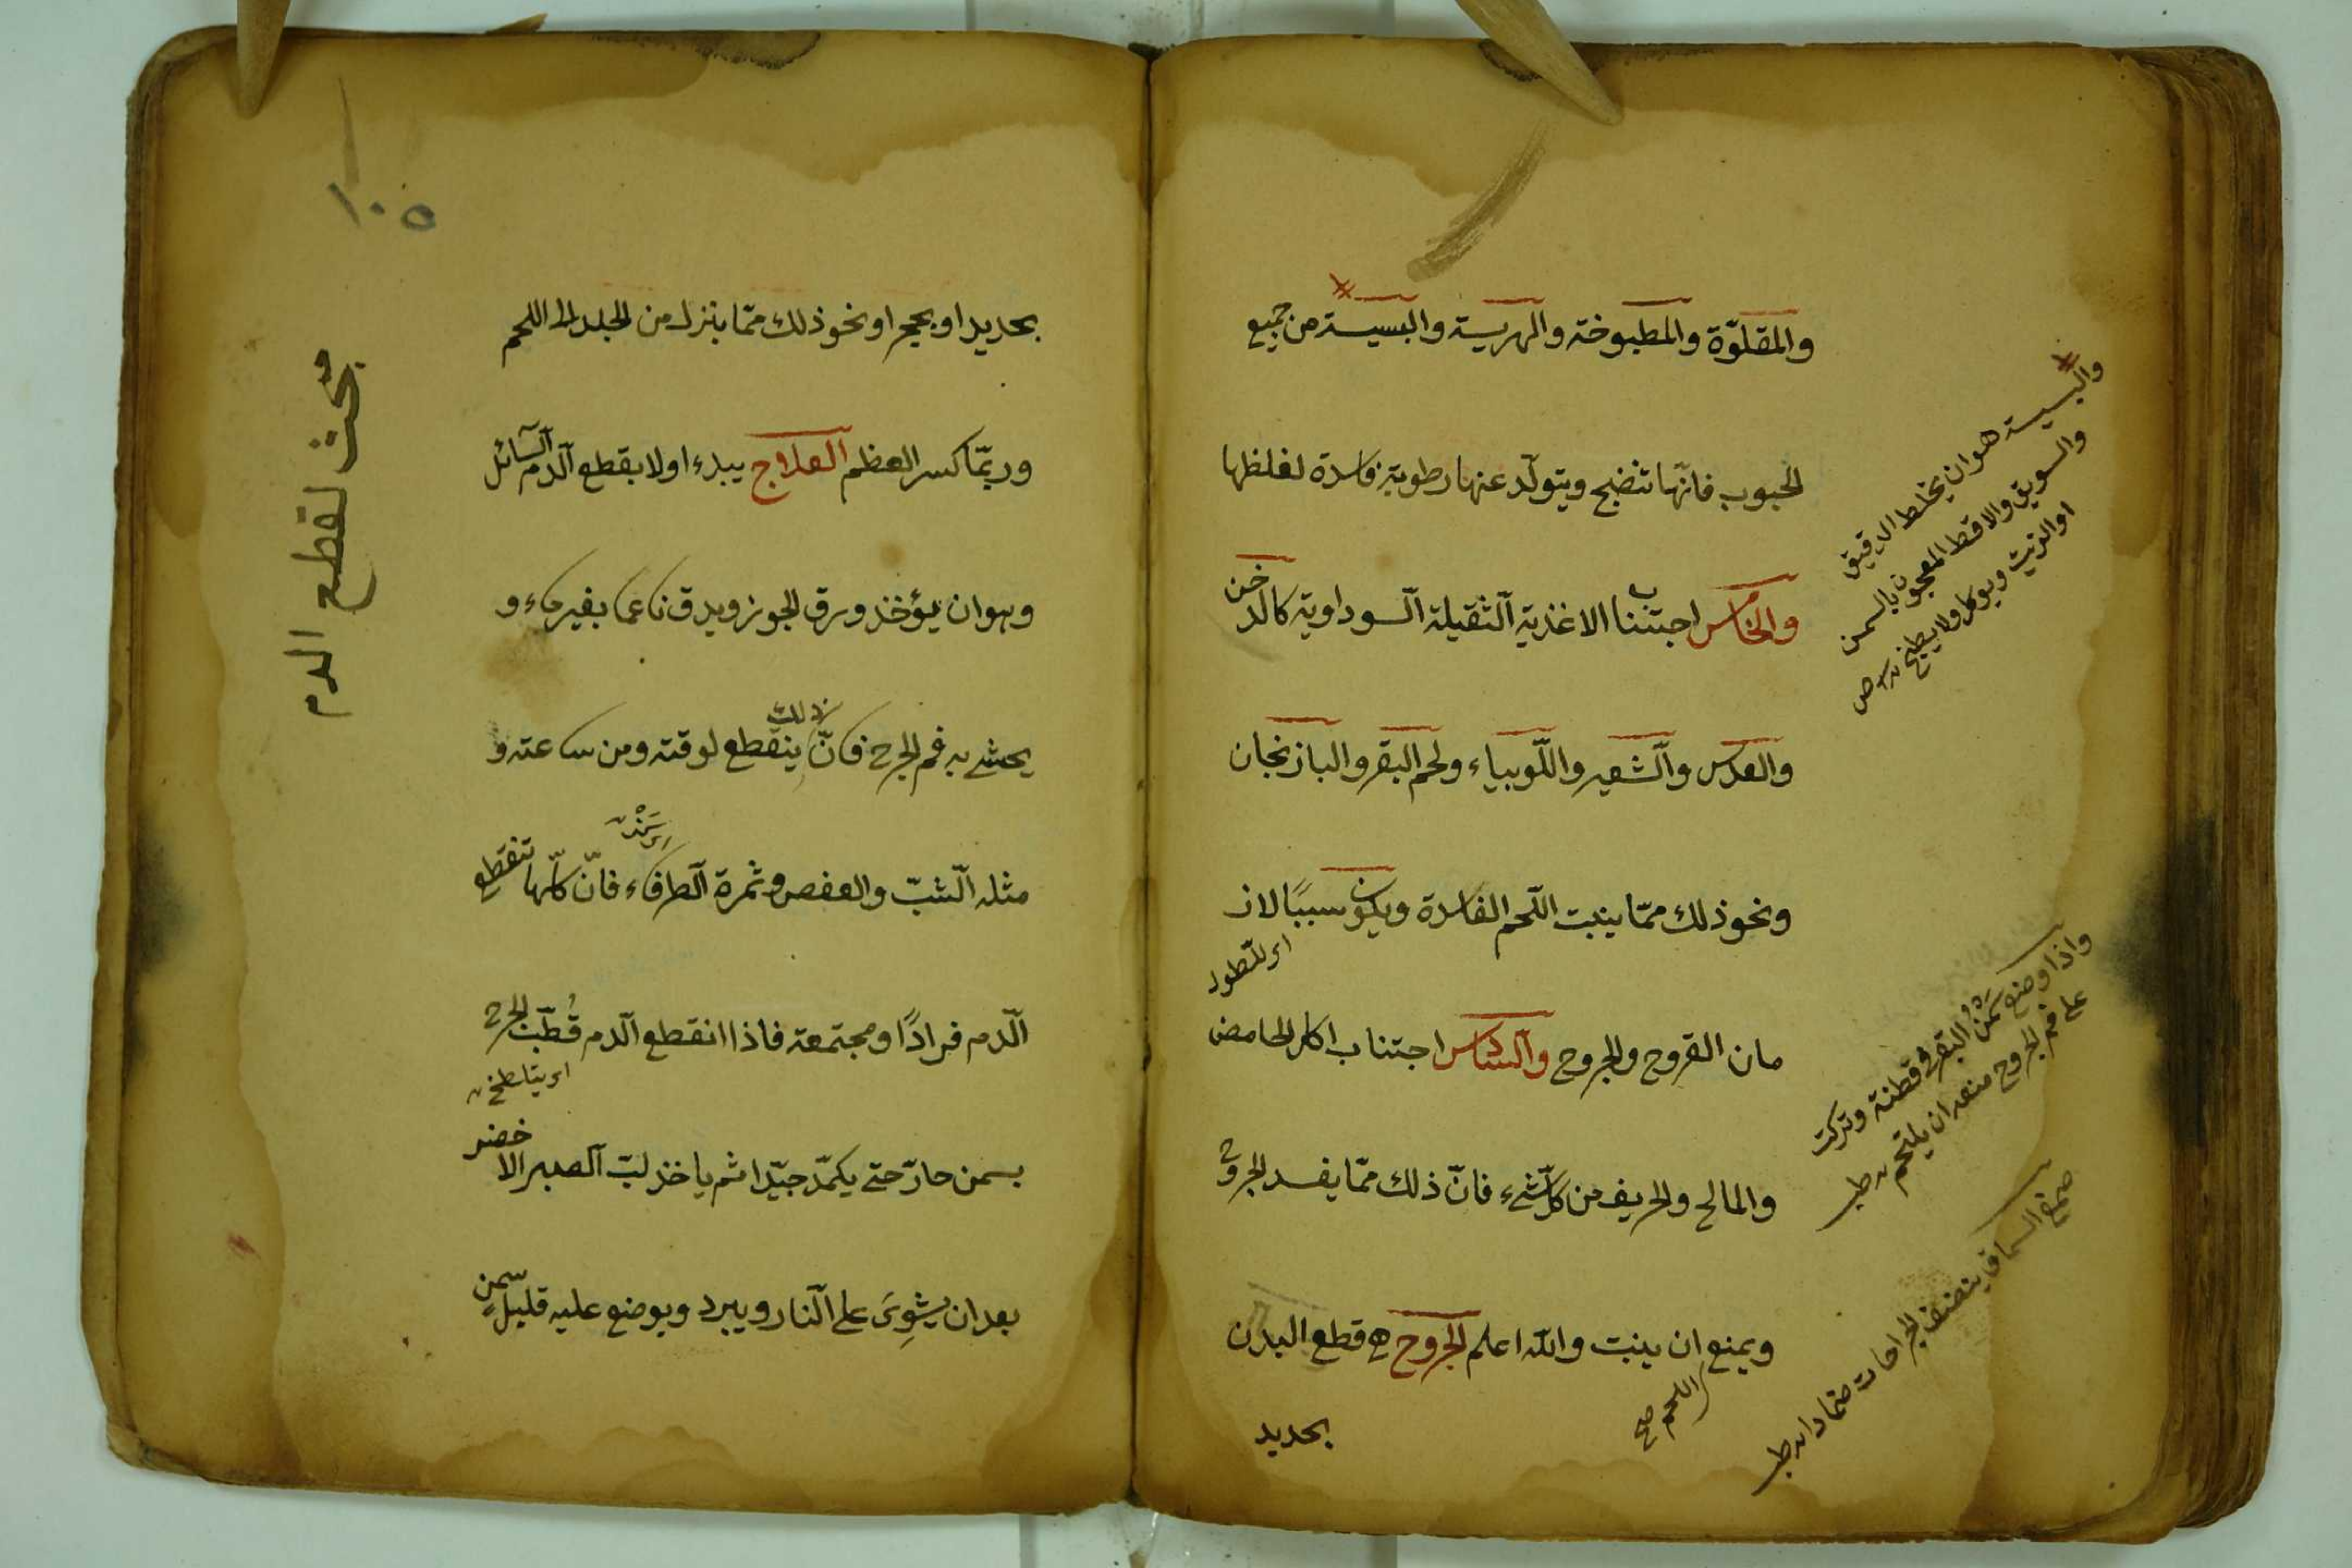 والمقلوّة والمطبوخة والهريسة والبسيسة من جميع
الحبوب فانّها تنضج ويتولّد عنها رطوبة فاسدة لغلظها
والخامس اجتنابنا الاغذية الثقيلة السوداوية كالدخن
والعدس والشعير واللّوبياء ولحم البقر والباذنجان
ونحو ذلك ممّا ينبت اللّحم الفاسدة ويكون سببًا لاز
اى للطور
مان القروح والجروح والسادس اجتناب اكل الحامض
والمالح والحريف من كلّ شئ فانّ ذلك ممّا يفسد الجروح
ويمنع ان ينبت والله اعلم الجروح هى قطع البدن
اللحم صح
بحديد
والبسيسة هو ان يخلط الدقيق
والسويق والاقط المعجون بالسمن
او الزيت ويوكل ولا يطبخ
واذا وضع سَمْنُ البقر فى قطنة وتركت
على فم الجروح منعه ان يلتحم طب
صمغ السماق ينضف الجراحات ضمادا طب
١٠٥
بحث لقطع الدم
بحديد او بحجر او نحو ذلك ممّا ينزل من الجلد الى اللحم
وربّما كسر العظم العلاج يبدء اولا بقطع الدم السائل
وهو ان يؤخذ ورق الجوز ويدق ناعما بغير ماء و
يحشى به فم الجرح فانّ ذلك ينقطع لوقته ومن ساعته و
مثله الشبّ والعفص وثمرة الطرفاء فانّ كلّها تنقطع
الدم فرادًا ومجتمعة فاذا انقطع الدم قُطّب الجرح
بسمن حارّ حتى يكمّد جيّدا ثم ياخذ لبّ الصبر الاخضر
بعد ان يشوِىَ على النار ويبرد ويوضع عليه قليل سمن